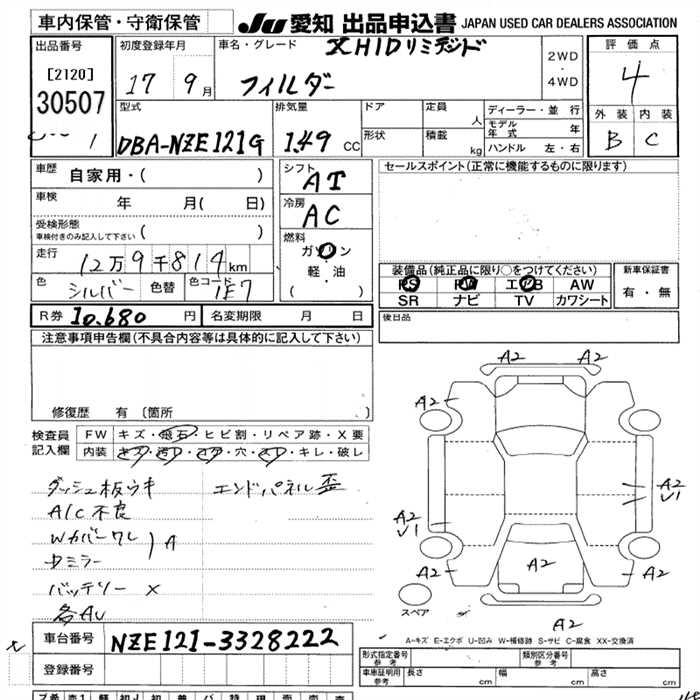 車内保管・守衛保管
JU 愛知 出品申込書 JAPAN USED CAR DEALERS ASSOCIATION
出品番号
[2120]
30507
初度登録年月
17 9月
車名・グレード
X HIDリミテッド
フィルダー
2WD
・
4WD
評価点
4
外装 内装
B C
型式
DBA-NZE121G
排気量
1.49 cc
ドア
形状
定員 人
積載 kg
ディーラー・並行
モデル年式 年
ハンドル 左・右
車歴
自家用・( )
車検 年 月( 日)
受検形態
車検付きのみ記入して下さい ( )
走行
12万9千814km
色 シルバー 色替 色コード 1E7
シフト
AT
冷房
AC
燃料
ガソリン
軽・油
( )
セールスポイント(正常に機能するものに限ります)
装備品(純正品に限り○をつけてください)
PS PW エアB AW
SR ナビ TV カワシート
新車保証書
有・無
R券 10,680 円 名変期限 月 日
後日品
注意事項申告欄(不具合内容等は具体的に記入して下さい)
修復歴 有(箇所 )
検査員記入欄
FW キズ・飛石・ヒビ割・リペア跡・X要
内装 キズ・汚レ・コゲ・穴・スレ・キレ・破レ
ダッシュ板ウキ エンドパネル歪
A/C不良
Wカバーワレ
中ミラー
A
バッテリー X
各AU
A2 A2
A2 A2
A2
U1
A2
U1
A2 A2 A2
スペア
A2
A-キズ E-エクボ U-凹み W-補修跡 S-サビ C-腐食 XX-交換済
車台番号 NZE121-3328222
登録番号
形式指定番号 参考
類別区分番号 参考
車庫証明用 参考 長さ cm 幅 cm 高さ cm